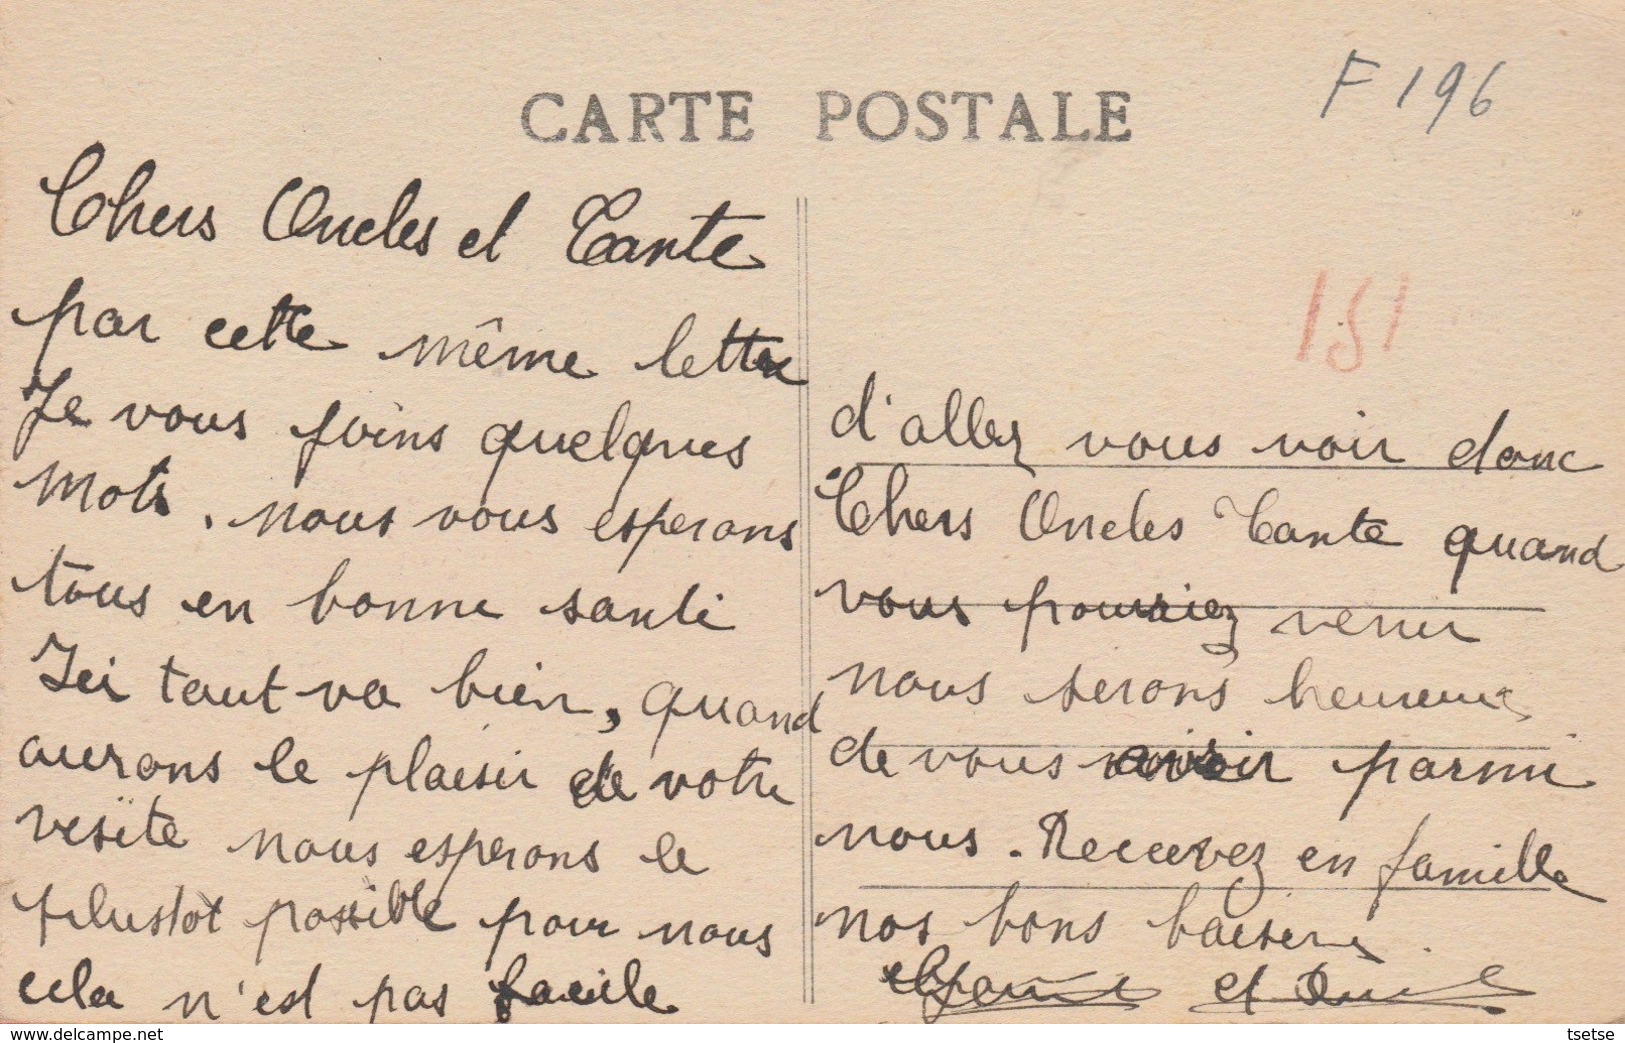 CARTE POSTALE
F 196
151
Chers Oncles et Tante
par cette même lettre
Je vous joins quelques
mots. nous vous esperons
tous en bonne santé
Ici tout va bien, quand
aurons le plaisir de votre
visite nous esperons le
plustot possible pour nous
cela n'est pas facile
d'aller vous voir donc
Chers Oncles Tante quand
vous pourriez venir
nous serons heureux
de vous avoir parmi
nous. Recevez en famille
nos bons baisers.
et
delcampe.net
tsetse